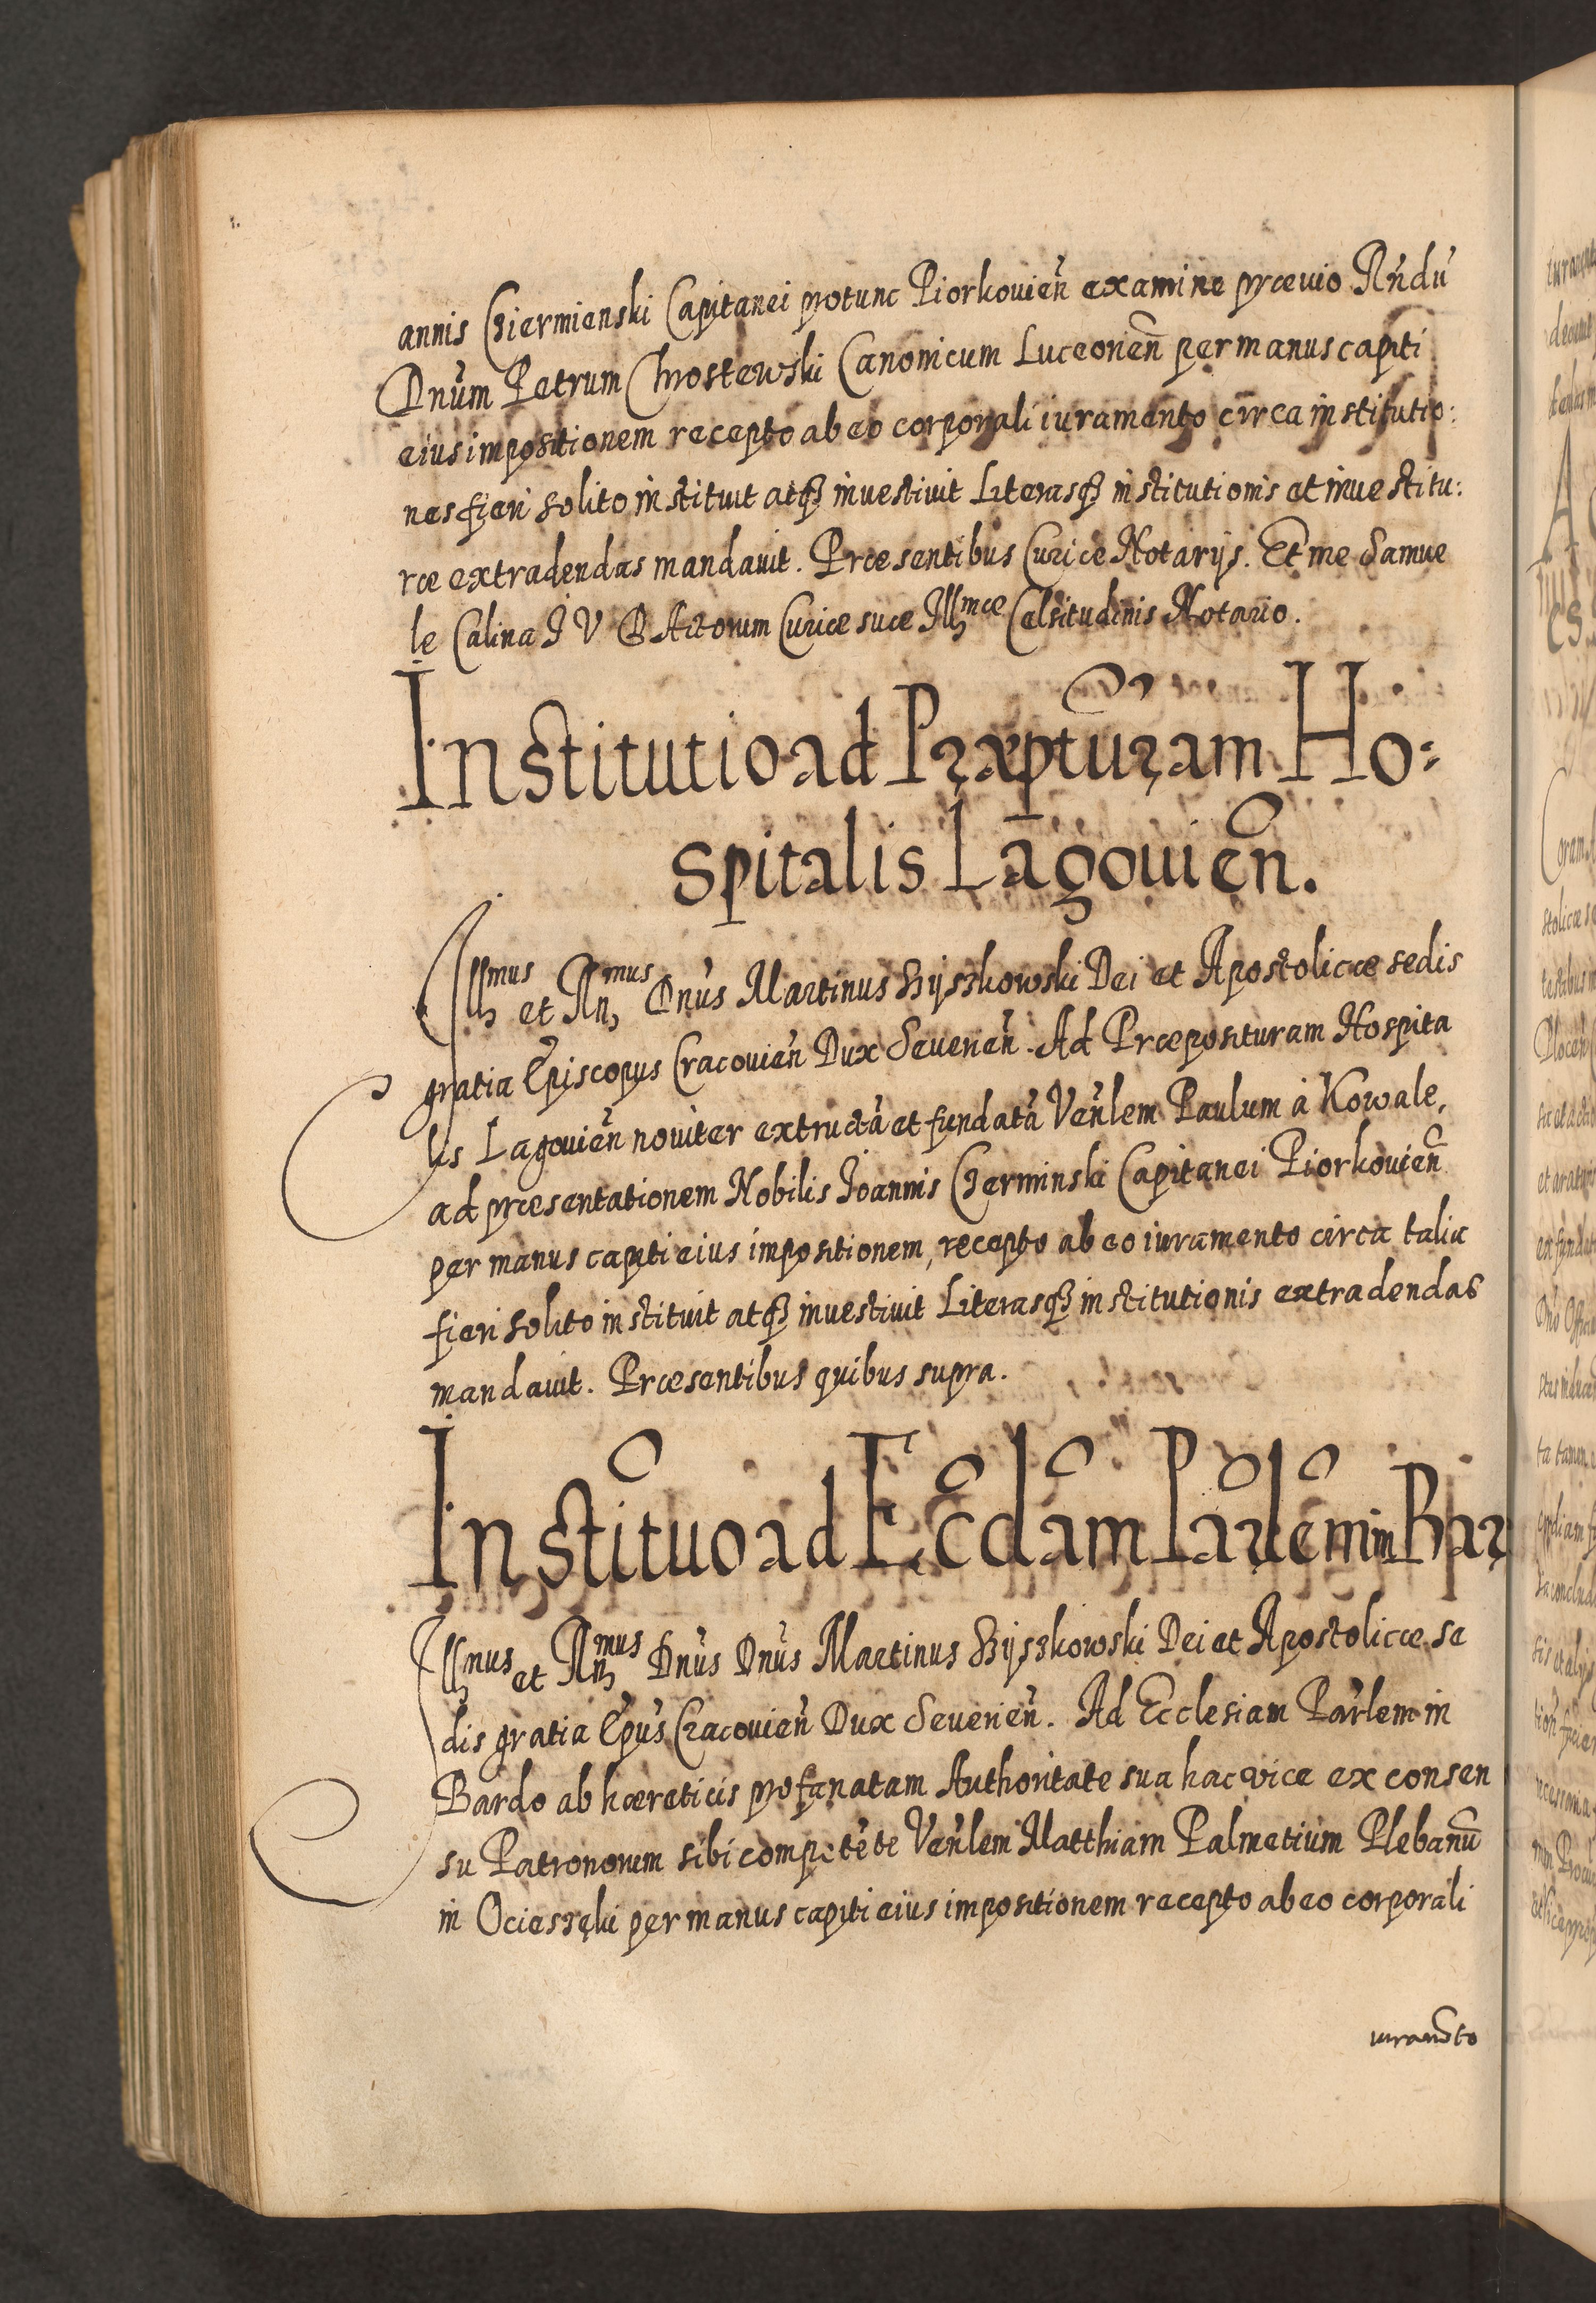 annis Cziermienski Capitanei protunc Piorkovien̄ examine prævio Rn̄dū
Dnūm Petrum Chrostewski Canonicum Luceorien̄ per manus capiti
eius impositionem recepto ab eo corporali iuramento circa institutio:
nes fieri solito instituit atqȝ inuestiuit Literasqȝ institutionis et inuestitu:
ræ extradendas mandauit. Præsentibus Curiæ Notarijs. Et me Samue
le Calina I V D Actorum Curiæ suæ Illmæ Celsitudinis Notario.
Institutio ad Præpturam Ho:
spitalis Lagouien̄.
Illmus et Rnmus Dnūs Martinus Szyszkowski Dei et Apostolicæ sedis
gratia Episcopus Cracouien̄ Dux Seuerien̄. Ad Præposituram Hospita
lis Lagouien̄ nouiter extructā et fundatā Ven̄lem Paulum à Kowale,
ad præsentationem Nobilis Joannis Czerminski Capitanei Piorkouien̄
per manus capiti eius impositionem, recepto ab eo iuramento circa talia
fieri solito instituit atqȝ inuestiuit Literasqȝ institutionis extradendas
mandauit. Præsentibus quibus supra.
Instituo ad Eccl̄am Par̄lem in Bar
Illmus et Rnmus Dnūs Dnūs Martinus Szyszkowski Dei et Apostolicæ se
dis gratia Epūs Cracouien̄ Dux Seuerien̄. Ad Ecclesiam Par̄lem in
Bardo ab hæreticis profanatam Authoritate sua hac vice ex consen
su Patronorum sibi competēte Ven̄lem Matthiam Palmetium Plebanū
in Ocieszęki per manus capiti eius impositionem recepto ab eo corporali
iuramēto